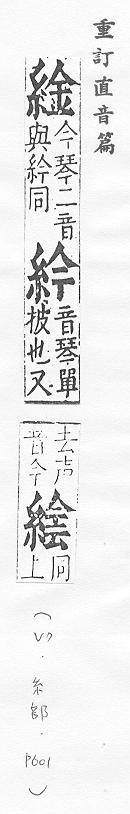 重訂直音篇
䋮今琴二音
與紟同
紟音琴單
被也又
去声
音今
同
上
(V7.糸部.P601)